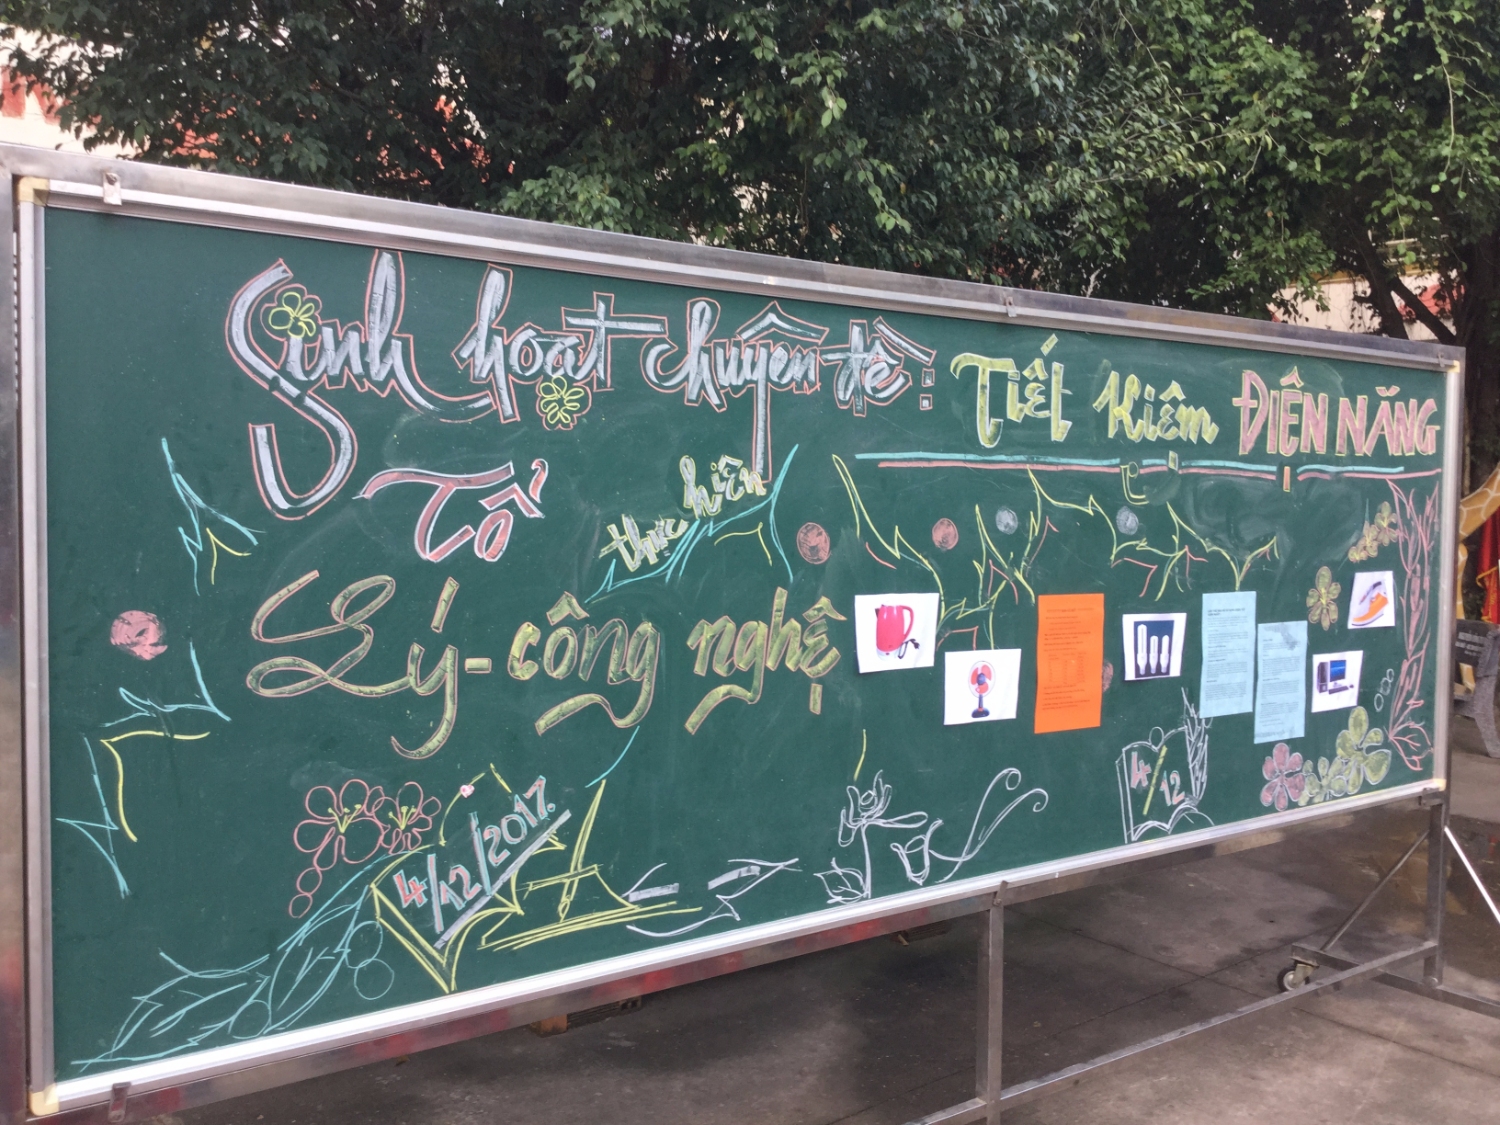 Sinh hoạt chuyên đề: Tiết kiệm ĐIỆN NĂNG
Tổ
thực hiện
Lý - công nghệ
4/12/2017.
4/12